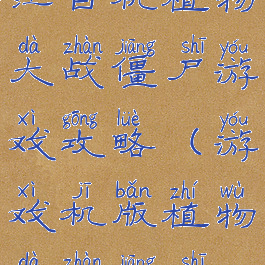 dà zhàn jiāng shī yóu
大战僵尸游
xì gōng lüè yóu
戏攻略（游
xì jī bǎn zhí wù
戏机版植物
dà zhàn jiāng shī